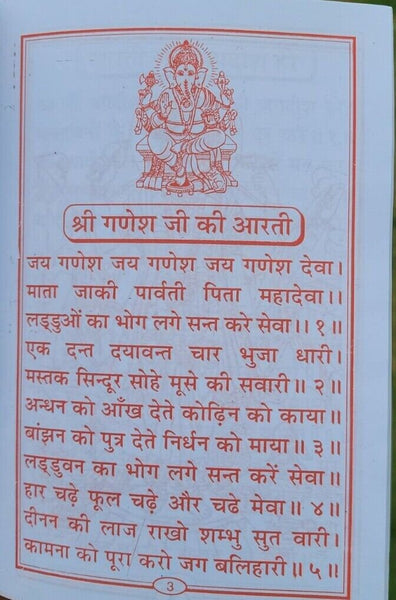 श्री गणेश जी की आरती
जय गणेश जय गणेश जय गणेश देवा।
माता जाकी पार्वती पिता महादेवा।।
लड्डुओं का भोग लगे सन्त करे सेवा।। १॥
एक दन्त दयावन्त चार भुजा धारी।
मस्तक सिन्दूर सोहे मूसे की सवारी॥ २॥
अन्धन को आँख देते कोढ़िन को काया॥
बांझन को पुत्र देते निर्धन को माया॥ ३॥
लड्डुवन का भोग लगे सन्त करें सेवा॥
हार चढ़े फूल चढ़े और चढे मेवा॥ ४॥
दीनन की लाज राखो शम्भु सुत वारी।
कामना को पूरा करो जग बलिहारी॥ ५॥
3